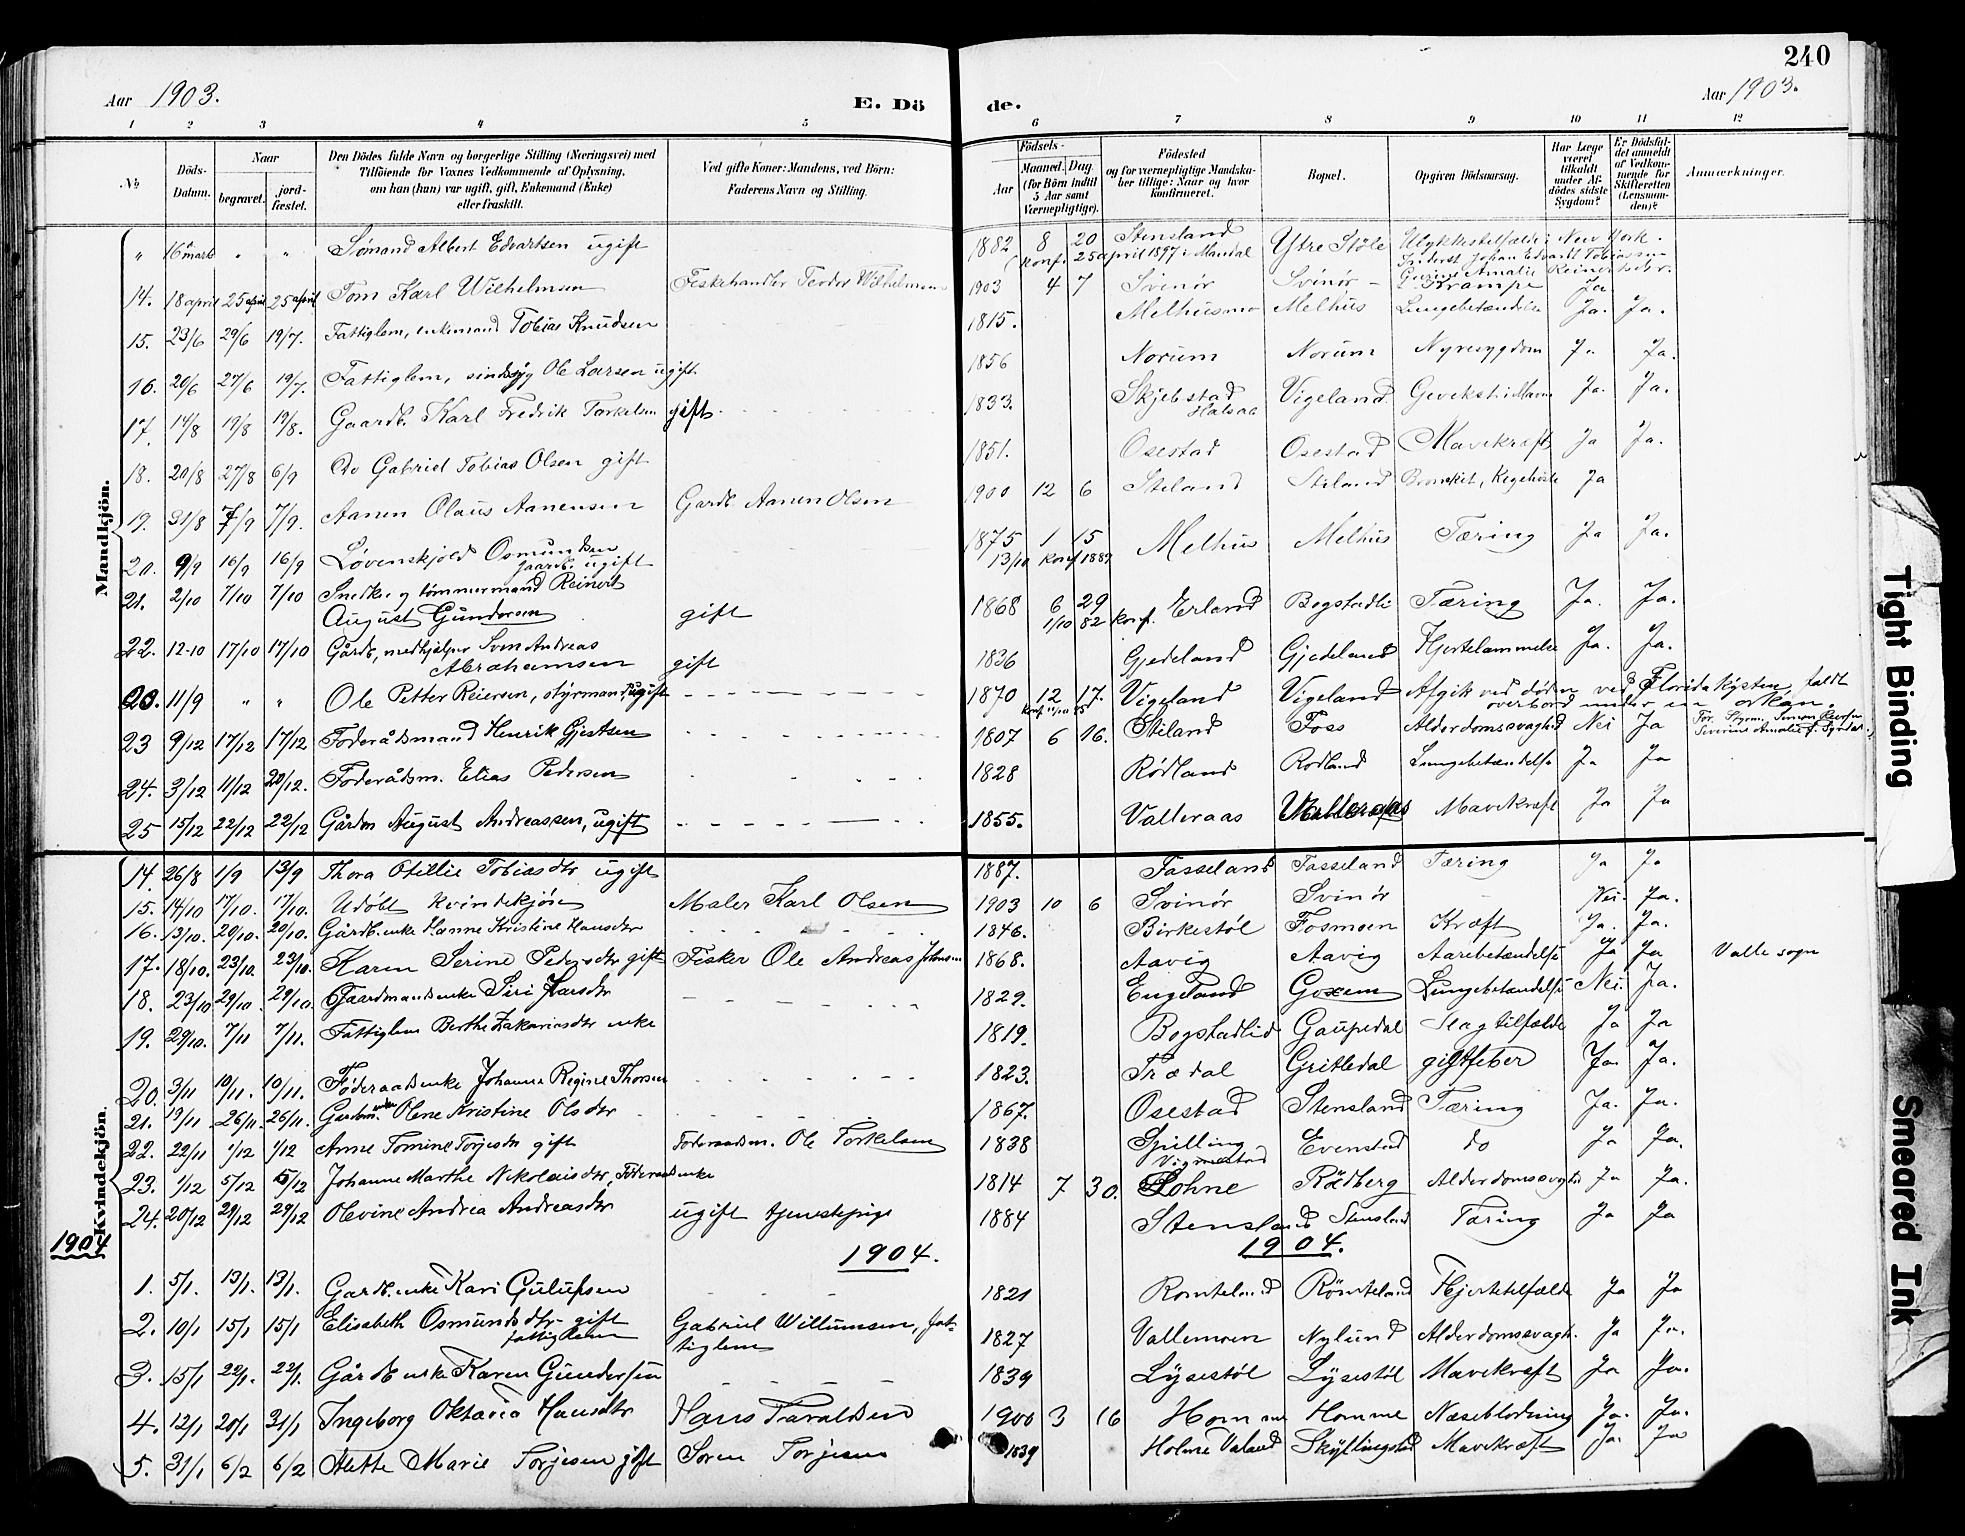 240
Aar 1903. E. Dö de. Aar 1903.
1 2 3 4 5 6 7 8 9 10 11 12
No. Döds-Datum. Naar begravet. jordfæstet. Den Dödes fulde Navn og borgerlige Stilling (Næringsvei) med Tilföiende for Voxnes Vedkommende af Oplysning, om han (hun) var ugift, gift, Enkemand (Enke) eller fraskilt. Ved gifte Koner: Mandens, ved Börn: Faderens Navn og Stilling. Födsels- Aar Maaned. Dag (for Börn indtil 5 Aar samt Værnepligtige). Födested og for værnepligtige Mandskaber tillige: Naar og hvor konfirmeret. Bopæl. Opgiven Dödsaarsag. Har Læge været tilkaldt under Afdödes sidste Sygdom? Er Dödsfaldet anmeldt af Vedkommende for Skifteretten (Lensmanden)? Anmærkninger.
Mandkjön.
" 16 marts " " Sømand Albert Edvartsen ugift 1882 8 20 Stensland Ytre Støle Ulykkestilfælde i New York.
konf. 25 april 1897 i Mandal Inderst Johan Edvardt Tobiassen
Gurine Amalie Reinertsdr.
14. 18 april 25 april 25 april Tom Karl Wilhelmsen Fiskehandler Teodor Wilhelmsen 1903 4 7 Svinör Svinör Krampe Ja.
15. 23/6 29/6 19/7. Fattiglem, enkemand Tobias Knudsen 1815. Melhusmo Melhus Lungebetændelse Ja. Ja.
16. 20/6 27/6 19/7. Fattiglem, sindssyg Ole Larsen ugift 1856 Norum Norum Nyresygdom Ja Ja.
17. 14/8 19/8 19/8. Gaardb. Karl Fredrik Torkelsen gift 1833. Skjebstad Halsaa Vigeland Gevekst i Maven Ja. Ja.
18. 20/8 27/8 6/9 Do Gabriel Tobias Olsen gift 1851. Osestad Osestad Mavekræft Ja Ja.
19. 31/8 7/9 7/9. Aanen Olaus Aanensen Gardb. Aanen Olsen 1900 12 6 Stiland Stiland Bronkit, Kigehoste Ja
20. 9/9 16/9 16/9 Løvenskjold Osmundsen gaardb. ugift 1875 1 15 Melhus Melhus Tæring Ja Ja.
13/10 konf 1889
21. 2/10 7/10 7/10 Snedker og tømmermand Reinert
August Gundersen gift 1868 6 29 Erland Bogstadli Tæring Ja. Ja.
1/10 82 konf.
22. 12-10 17/10 17/10 Gårdb, medhjælper Sven Andreas
Abrahamsen gift 1836 Gjedeland Gjedeland Hjertelammelse Ja. Ja.
23. 11/9 " " Ole Petter Reiersen, styrmand, ugift 1870 12 17. Vigeland Vigeland Afgik ved døden ved Florida kysten, faldt
overbord under en orkan.
23 9/12 17/12 17/12 Foderådsmand Henrik Gjertsen 1807 6 16. Stiland Foss Alderdomssvaghed Nei Ja
24. 3/12 11/12 20/12. Foderådsm. Elias Pedersen 1828 Rødland Rødland Lungebetændelse Ja Ja
25 15/12 22/12 22/12 Gårdm August Andreassen, ugift 1855. Valleraas Valleraas Mavekræft Ja Ja
Kvindekjön.
14. 26/8 1/9 13/9 Thora Otillie Tobiasdtr ugift 1887. Fasseland Fasseland Tæring Ja Ja
15. 14/10 17/10. 17/10. Udøbt kvindekjøn Maler Karl Olsen 1903 10 6 Svinör Svinör - Nei. Ja.
16. 13/10. 20/10. 20/10. Gårdb. enke Hanne Kristine Hansdtr 1846. Birkestöl Fosmoen Kræft Ja. Ja.
17. 18/10. 23/10. 23/10. Karen Serine Pedersdtr gift Fisker Ole Andreas Johnsen 1868. Aavig Aavig Aarebetændelse Ja Ja Valle sogn
18. 23/10 29/10. 29/10. Gaardmandsenke Siri Larsdtr 1829. Engeland Goxem Lungebetændelse Nei. Ja.
19. 29/10. 7/11 7/11. Fattiglem Berthe Zakariasdtr enke 1819. Bogstadlid Gaupedal Slagtilfælde Ja Ja
20. 3/11 10/11. 10/11. Føderaadsenke Johanne Regine Thorsen 1823. Trædal Gritledal giftfeber Ja. Ja.
21. 19/11 26/11. 26/11. Gardm. enke Olene Kristine Olsdtr 1867. Osestad Stensland Tæring Ja. Ja.
22. 22/11 1/12 1/12 Anne Tomine Torjesdtr gift Foderaadsm. Ole Torkelsen 1838 Spilling Evenstad do Ja Ja.
Vigmostad
23. 1/12 5/12 5/12 Johanne Marthe Nikolaisdtr, Føderaadsenke 1814 7 30. Lohne Rådberg Alderdomssvaghed Ja Ja.
24. 20/12 29/12 29/12 Olevine Andrea Andreasdtr ugift tjenestepige 1884 Stensland Stensland Tæring Ja Ja
1904 1904. 1904.
1. 5/1. 13/1. 13/1. Gardb. enke Kari Gulufsen 1821 Romteland Römteland Hjertetilfælde Ja Ja
2. 10/1 15/1 15/1 Elisabeth Osmundsdtr gift fattiglem Gabriel Willumsen, fattiglem 1827 Vallemoen Nylund Alderdomssvagh. Ja Ja.
3. 15/1 22/1. 22/1. Gårdb enke Karen Gundersen 1839 Lysestöl Lysestöl Mavekræft Ja Ja.
4. 12/1 20/1 31/1 Ingeborg Oktavia Hansdtr Hans Taraldsen 1900 3 16 Homme Homme Næseblødning Ja. Ja.
5. 31/1 6/2 6/2 Alette Marie Torjesen gift Soren Torjesen 1839 Holme Valand Skyllingstad Mavekræft Ja. Ja
Tight Binding
Smeared Ink